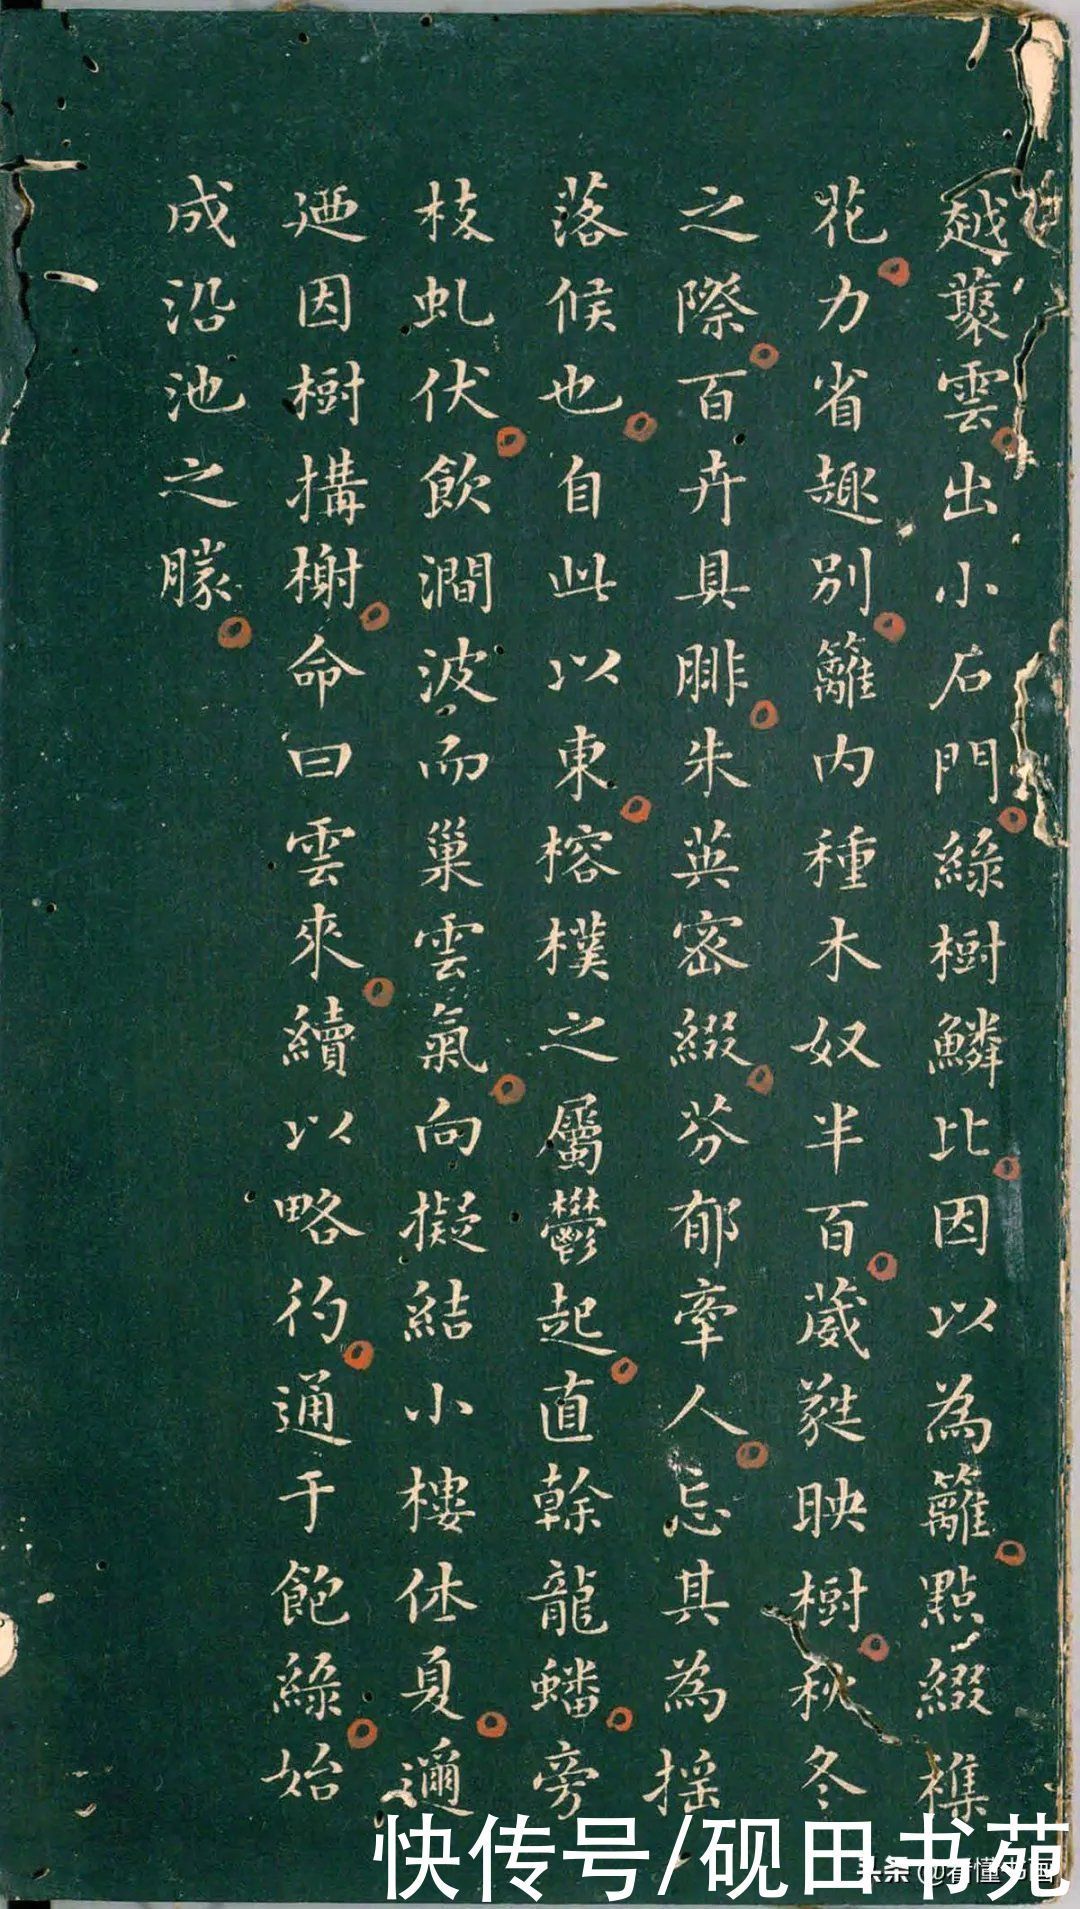 越蘂雲出小石門綠樹鱗比因以為籬點綴襍
花力省趣別籬內種木奴半百葳蕤映樹秋冬
之際百卉具腓朱英密綴芬郁牽人忘其為揺
落候也自此以東榕樸之屬鬱起直榦龍蟠旁
枝虬伏飲澗波而巢雲氣向擬結小樓休夏邇
迺因樹搆榭命曰雲來續以略彴通于飽綠始
成沿池之勝
快传号/砚田书苑
头条@看懂书画